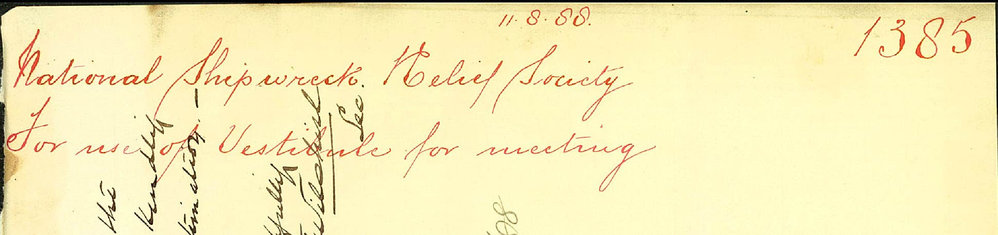 11.8.88.
1385
National Shipwreck Relief Society
For use of Vestibule for meeting
the
Kindly
Sec